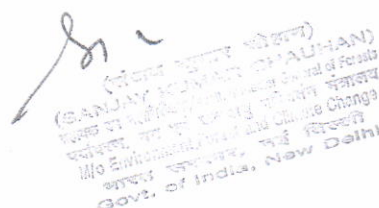 (संजय कुमार चौहान)
(SANJAY KUMAR CHAUHAN)
General of Forests
पर्यावरण, वन एवं जलवायु परिवर्तन मंत्रालय
M/o Environment, Forest and Climate Change
भारत सरकार, नई दिल्ली
Govt. of India, New Delhi